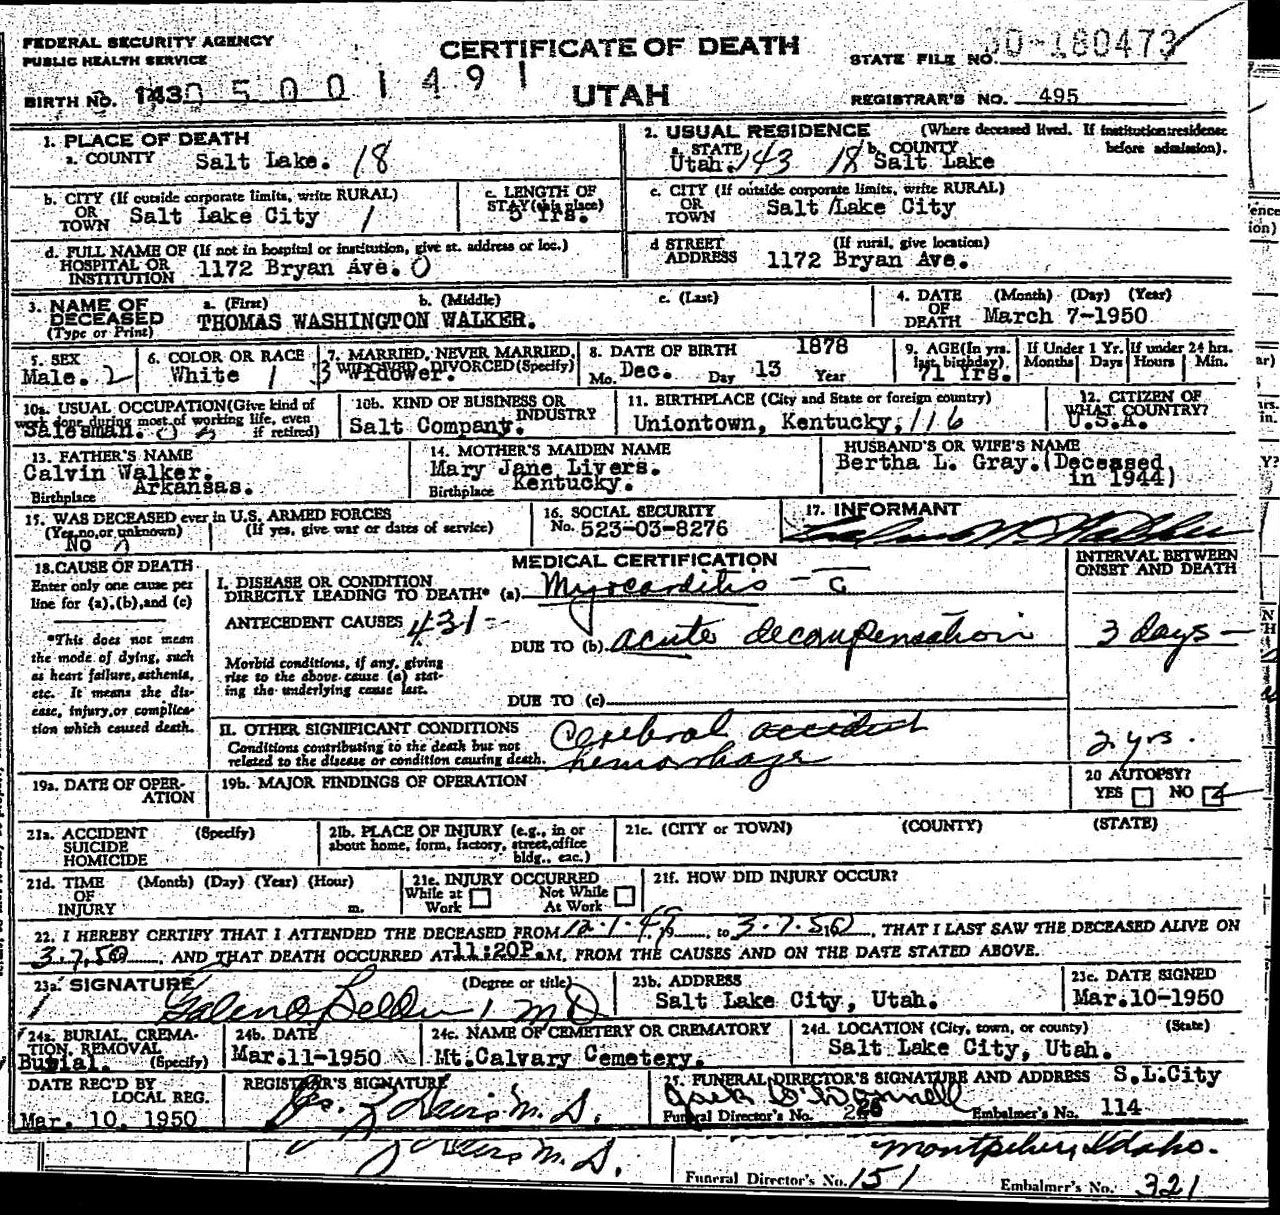 FEDERAL SECURITY AGENCY
PUBLIC HEALTH SERVICE
CERTIFICATE OF DEATH
UTAH
STATE FILE NO. 50-180473
BIRTH NO. 143 0 5 0 0 1 4 9 1
REGISTRAR'S NO. 495
1. PLACE OF DEATH
a. COUNTY Salt Lake. 18
2. USUAL RESIDENCE (Where deceased lived. If institution: residence before admission).
a. STATE Utah. 143 b. COUNTY 18 Salt Lake
b. CITY (If outside corporate limits, write RURAL)
OR TOWN Salt Lake City 1
c. LENGTH OF STAY (this place) 5 Yrs.
c. CITY (If outside corporate limits, write RURAL)
OR TOWN Salt Lake City
d. FULL NAME OF (If not in hospital or institution, give st. address or loc.)
HOSPITAL OR INSTITUTION 1172 Bryan Ave. 0
d STREET ADDRESS (If rural, give location)
1172 Bryan Ave.
3. NAME OF DECEASED (Type or Print)
a. (First) b. (Middle) c. (Last)
THOMAS WASHINGTON WALKER.
4. DATE OF DEATH (Month) (Day) (Year)
March 7-1950
5. SEX
Male. 2
6. COLOR OR RACE
White 1
7. MARRIED, NEVER MARRIED, WIDOWED, DIVORCED (Specify)
3 Widower.
8. DATE OF BIRTH 1878
Mo. Dec. Day 13 Year
9. AGE (In yrs. last birthday)
71 Yrs.
If Under 1 Yr. Months Days
If under 24 hrs. Hours Min.
10a. USUAL OCCUPATION (Give kind of work done during most of working life, even if retired)
Salesman.
10b. KIND OF BUSINESS OR INDUSTRY
Salt Company.
11. BIRTHPLACE (City and State or foreign country)
Uniontown, Kentucky, 116
12. CITIZEN OF WHAT COUNTRY?
U.S.A.
13. FATHER'S NAME
Calvin Walker.
Birthplace Arkansas.
14. MOTHER'S MAIDEN NAME
Mary Jane Livers.
Birthplace Kentucky.
HUSBAND'S OR WIFE'S NAME
Bertha L. Gray. (Deceased in 1944)
15. WAS DECEASED ever in U.S. ARMED FORCES
(Yes, no, or unknown) (If yes, give war or dates of service)
No
16. SOCIAL SECURITY
No. 523-03-8276
17. INFORMANT
18. CAUSE OF DEATH
Enter only one cause per line for (a), (b), and (c)
*This does not mean the mode of dying, such as heart failure, asthenia, etc. It means the disease, injury, or complication which caused death.
MEDICAL CERTIFICATION
INTERVAL BETWEEN ONSET AND DEATH
I. DISEASE OR CONDITION DIRECTLY LEADING TO DEATH* (a) Myocarditis - c̄
ANTECEDENT CAUSES 431 -
DUE TO (b) acute decompensation 3 days -
Morbid conditions, if any, giving rise to the above cause (a) stating the underlying cause last.
DUE TO (c)
II. OTHER SIGNIFICANT CONDITIONS
Conditions contributing to the death but not related to the disease or condition causing death.
Cerebral accident hemorrhage 2 yrs.
19a. DATE OF OPERATION
19b. MAJOR FINDINGS OF OPERATION
20 AUTOPSY?
YES NO
21a. ACCIDENT SUICIDE HOMICIDE (Specify)
21b. PLACE OF INJURY (e.g., in or about home, form, factory, street, office bldg., eac.)
21c. (CITY or TOWN) (COUNTY) (STATE)
21d. TIME OF INJURY (Month) (Day) (Year) (Hour) m.
21e. INJURY OCCURRED
While at Work Not While At Work
21f. HOW DID INJURY OCCUR?
22. I HEREBY CERTIFY THAT I ATTENDED THE DECEASED FROM 12-1-49, to 3-7-50, THAT I LAST SAW THE DECEASED ALIVE ON
3-7, 50, AND THAT DEATH OCCURRED AT 11:20P.M. FROM THE CAUSES AND ON THE DATE STATED ABOVE.
23a. SIGNATURE (Degree or title)
M D
23b. ADDRESS
Salt Lake City, Utah.
23c. DATE SIGNED
Mar.10-1950
24a. BURIAL, CREMATION, REMOVAL (Specify)
Burial.
24b. DATE
Mar.11-1950
24c. NAME OF CEMETERY OR CREMATORY
Mt.Calvary Cemetery.
24d. LOCATION (City, town, or county) (State)
Salt Lake City, Utah.
DATE REC'D BY LOCAL REG.
Mar. 10. 1950
REGISTRAR'S SIGNATURE
25. FUNERAL DIRECTOR'S SIGNATURE AND ADDRESS S.L.City
Jack O'Donnell
Funeral Director's No. Embalmer's No. 114
Montpelier, Idaho.
Funeral Director's No. 151 Embalmer's No. 321